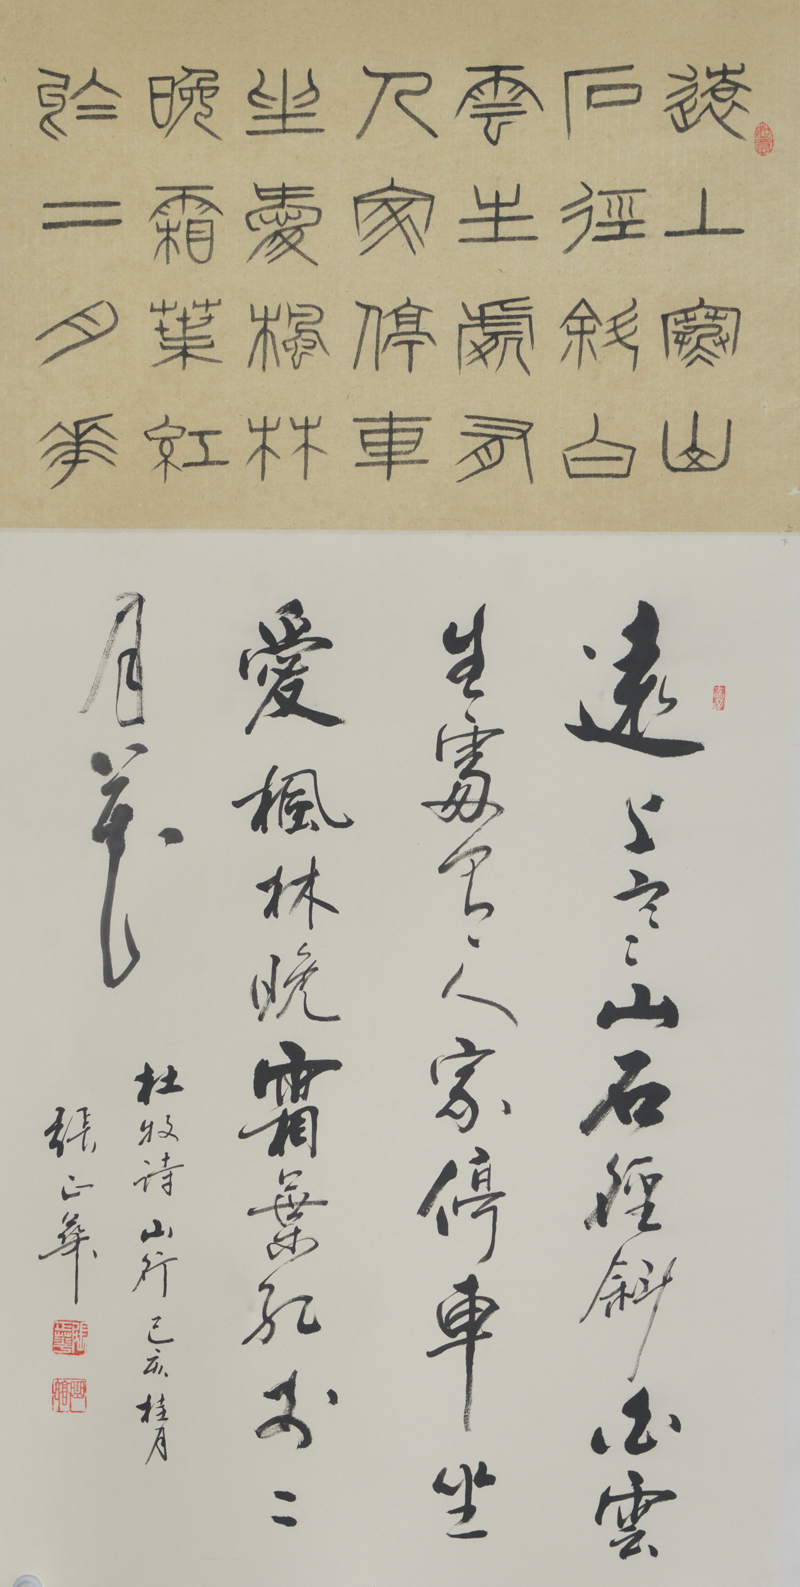 遠上寒山
石徑斜白
雲生處有
人家停車
坐愛楓林
晚霜葉紅
於二月花
遠上寒山石徑斜白雲
生處有人家停車坐
愛楓林晚霜葉紅於二
月花
杜牧詩山行己亥桂月
張正華